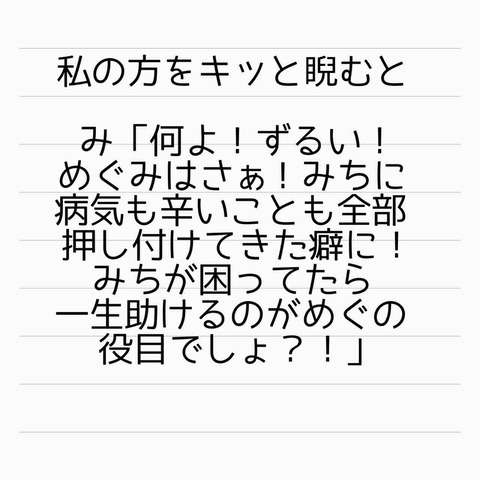 私の方をキッと睨むと
み「何よ！ずるい！
めぐみはさぁ！みちに
病気も辛いことも全部
押し付けてきた癖に！
みちが困ってたら
一生助けるのがめぐの
役目でしょ？！」